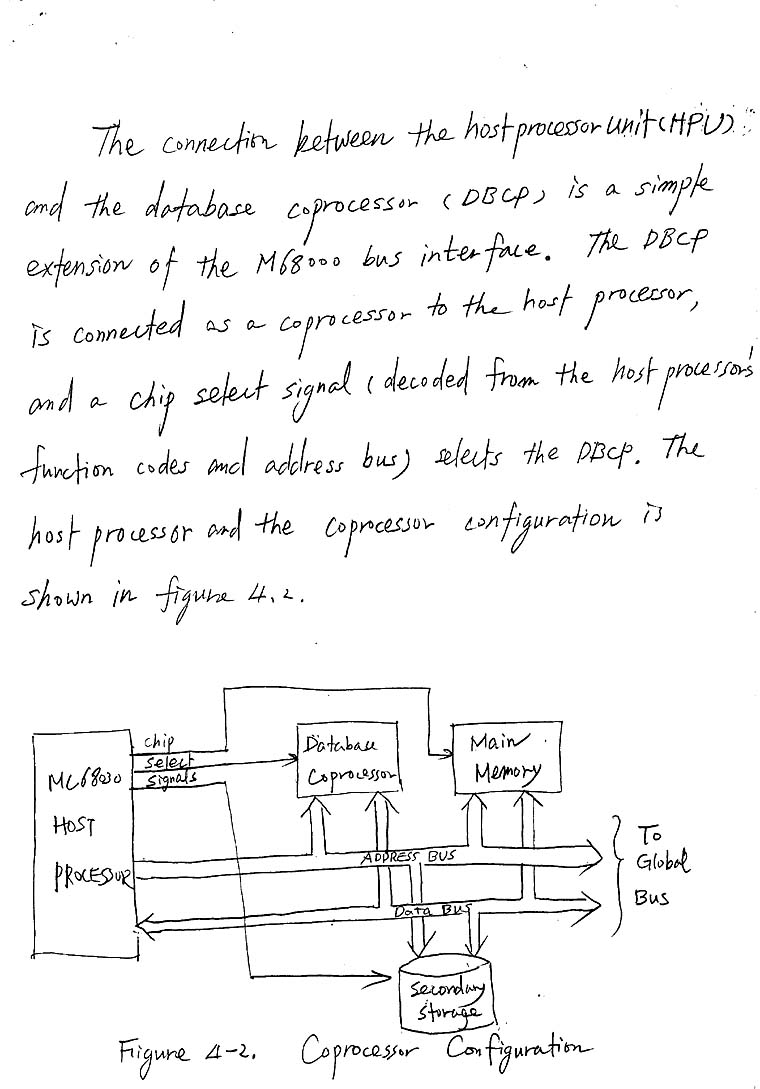 The connection between the host processor unit (HPU)
and the database coprocessor (DBCP) is a simple
extension of the M68000 bus interface. The DBCP
is connected as a coprocessor to the host processor,
and a chip select signal (decoded from the host processor's
function codes and address bus) selects the DBCP. The
host processor and the coprocessor configuration is
shown in figure 4.2.
chip
select
signals
Database
Coprocessor
Main
Memory
MC68030
HOST
PROCESSOR
ADDRESS BUS
Data Bus
To
Global
Bus
Secondary
Storage
Figure 4-2. Coprocessor Configuration